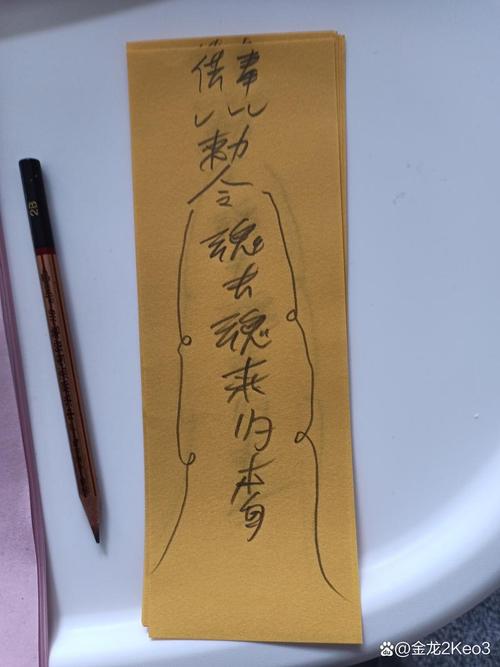 勅令
魂去魂来归本身
2B
金龙2Keo3